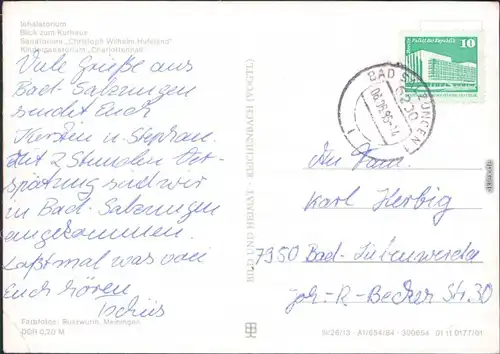 Inhalatorium
Blick zum Kurhaus
Sanatorium „Christoph Wilhelm Hufeland"
Kindersanatorium „Charlottenhall"
Viele Grüße aus
Bad Salzungen
sendet Euch
Kersten u. Stephan.
Mit 2 Stunden Ver-
spätung sind wir
in Bad-Salzungen
angekommen.
Laßt mal was von
Euch hören.
Tschüs
Farbfotos: Russwurm, Meiningen
DDR 0,20 M
BILD UND HEIMAT · REICHENBACH (VOGTL)
Palast der Republik
10
BAD SALZUNGEN 1
6200
An Fam.
Karl Herbig
7950 Bad-Liebenwerda
Joh.-R.-Becker Str. 30
A1/654/84 300654 01 11 0177/01